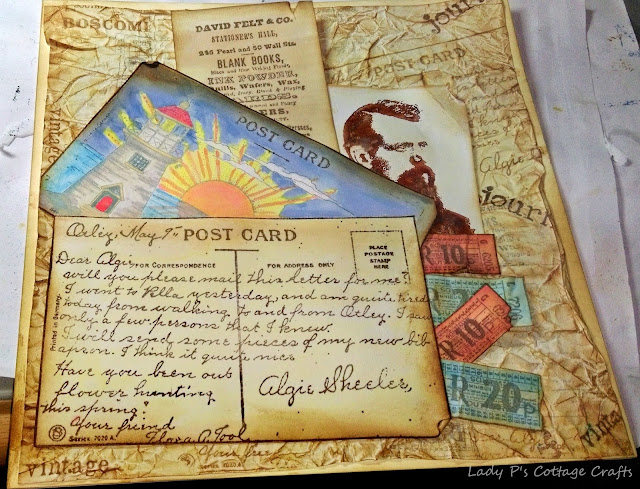 BOSCOM
DAVID FELT & CO.
STATIONER'S HALL,
245 Pearl and 50 Wall Sts.
BLANK BOOKS,
INK POWDER,
Quills, Wafers, Wax,
jour
POST CARD
Algie
vintage
POST CARD
jour
Orley, May 9th
POST CARD
Dear Algie, FOR CORRESPONDENCE
FOR ADDRESS ONLY
PLACE
POSTAGE
STAMP
HERE
will you please mail this letter for me?
I went to Rlla yesterday, and am quite tired
today from walking to and from Orley. I saw
only a few persons that I knew.
I will send some pieces of my new bib
apron. I think it quite nice
Have you been out
flower hunting
this spring?
Your friend
Flora A. Tool
Algie Sheeler,
Printed in Germany
SERIES 7020 A.
10
R 10 P
R 20 P
vintage
SERIES 7020 A
vinta
Lady P's Cottage Crafts